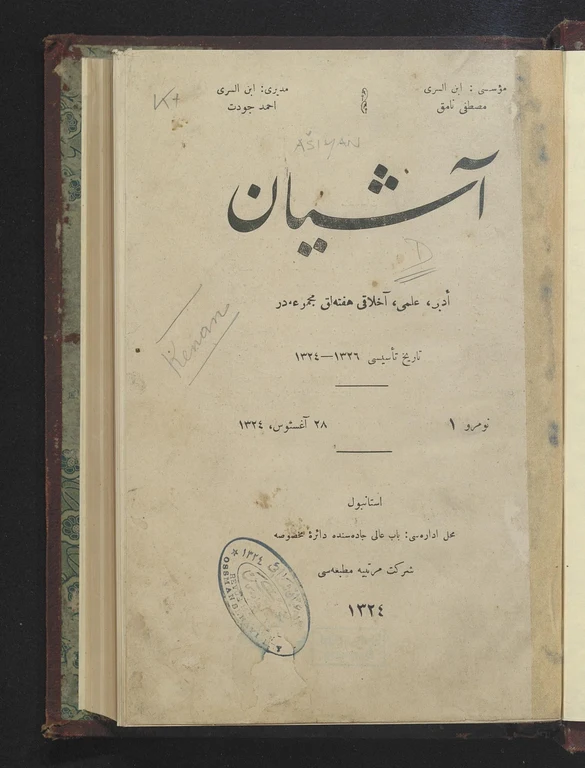 مؤسسی : ابن السری
مصطفی نامق
مدیری: ابن السری
احمد جودت
K+
AŠIYAN
آشیان
D
ادبی، علمی، آخلاقی هفته‌لق مجموعه‌در
Kenan
تاریخ تأسیسی ١٣٢٦—١٣٢٤
نومرو ١
٢٨ آغستوس، ١٣٢٤
استانبول
محل اداره‌سی: باب عالی جاده‌سنده دائرهٔ مخصوصه
شرکت مرتبیه مطبعه‌سی
١٣٢٤
١٣٢٤